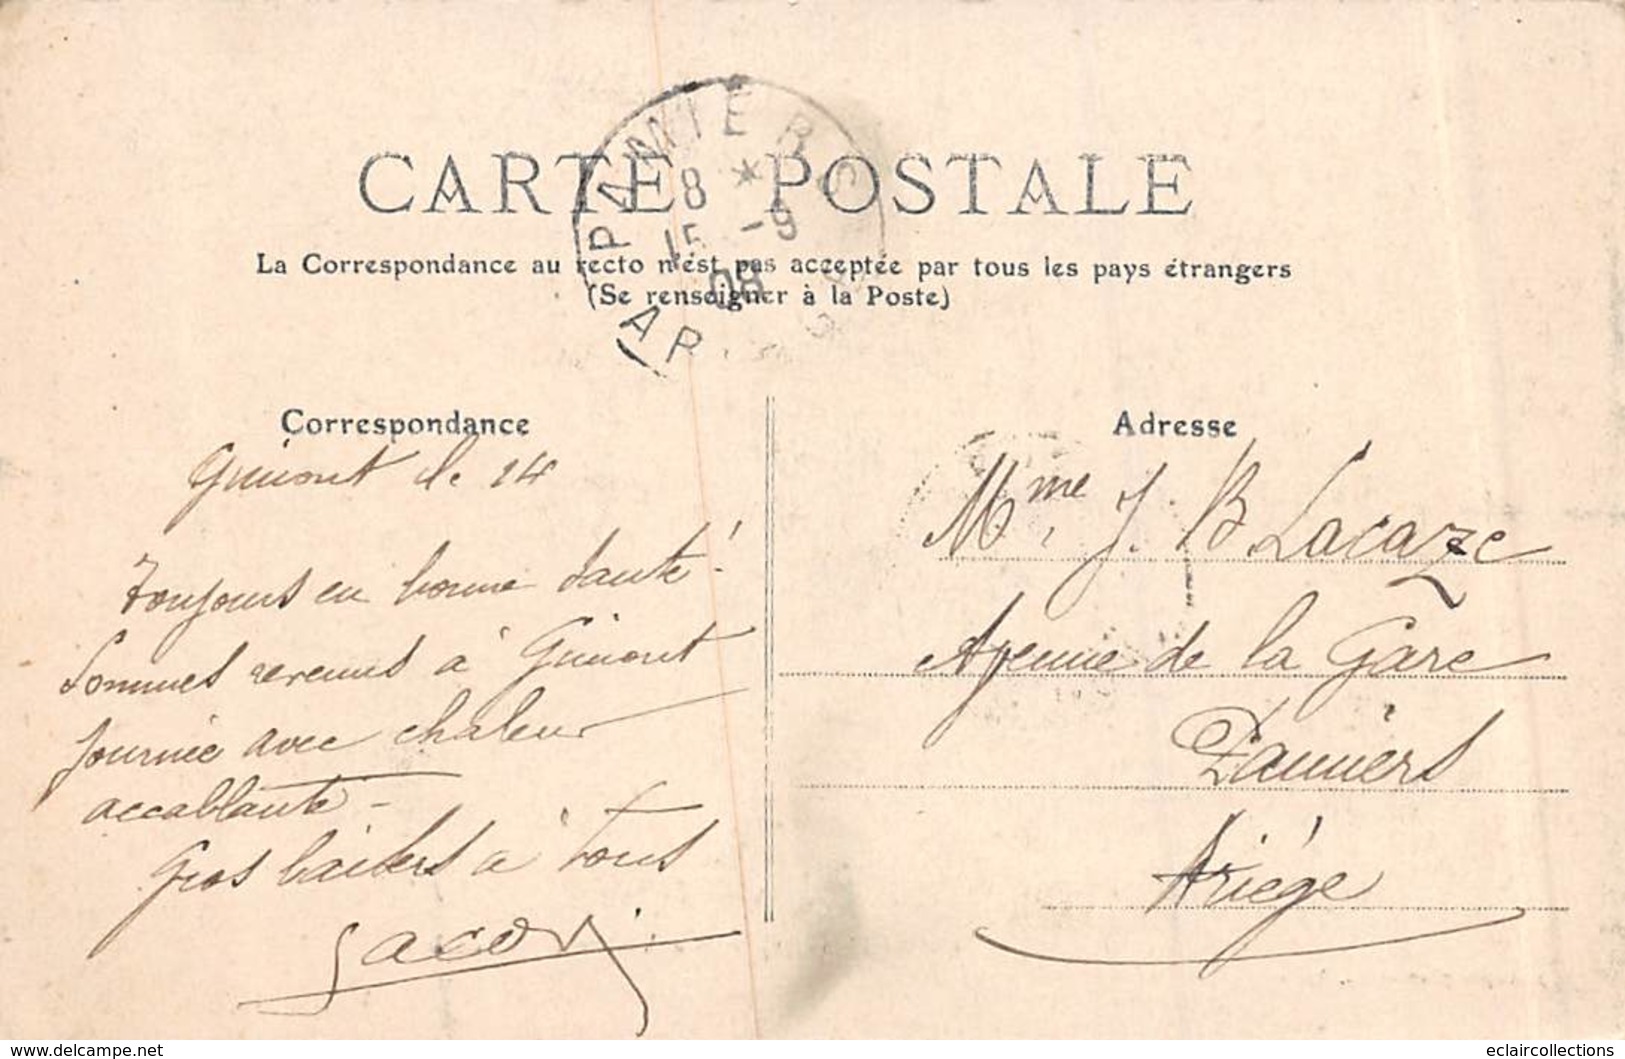 CARTE POSTALE
PAMIERS
8 *
15 -9
08
AR
La Correspondance au recto n'est pas acceptée par tous les pays étrangers
(Se renseigner à la Poste)
Correspondance
Gimont le 14
Toujours en bonne santé !
Sommes revenus à Gimont
Journée avec chaleur
accablante -
Gros baisers à tous
Adresse
Mme J. B Lacaze
Avenue de la Gare
Pamiers
Ariége
delcampe.net
eclaircollections